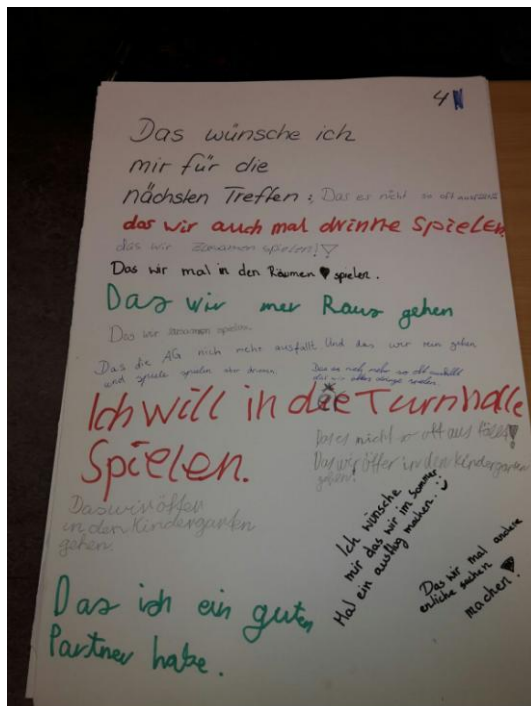 4
Das wünsche ich
mir für die
nächsten Treffen : Das es nicht so oft ausfällt
das wir auch mal drinne Spielen.
das wir zusamen spielen!
Das wir mal in den Räumen spielen.
Das wir mer Raus gehen
Das wir zusamen spielen.
Das die AG nich mehr ausfällt Und das wir rein gehen
und spiele spielen aber drinnen.
Das es nich mehr so oft ausfällt
das wir alles spielen.
Ich will in die Turnhalle
Spielen.
Das es nicht so oft aus fällt!
Das wir öffer in den Kindergarten
gehen!
Das wir öffer
in den Kindergarten
gehen.
Ich wünsche
mir das wir im Sommer
Mal ein ausflug machen.
Das wir mal andere
sachen
machen!
Das ich ein guten
Partner habe.